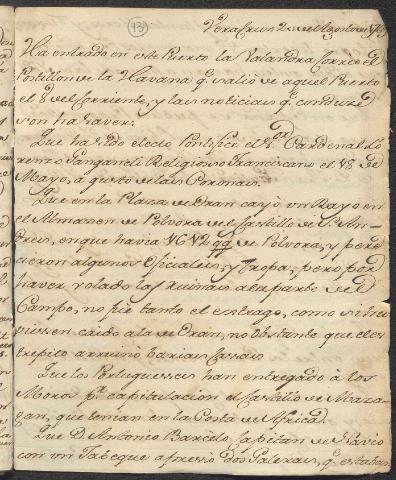 43
Vera Cruz 2 de Agosto de
Ha entrado en este Puerto la Valandra Correo el
Postillon de la Havana q.e salió de aquel Puerto
el 8 del Corriente, y las noticias q.e conduce
son haver:
Que ha sido electo Pontifice el S.or Cardenal Lo
renzo Ganganeli Religioso Franciscano el 18 de
Mayo, á gusto de las Coronas.
Que en la Plaza de Oran cayó un Rayo en
el Almazen de Polvora del Castillo de S.n An
dres, en que havia 1612 qq. de Polvora, y pere
cieron algunos Oficiales, y Tropa; pero por
haver volado las ruinas ala parte del
Campo, no fue tanto el estrago, como si hu
viesen caido ala de Oran, no obstante que el es
trepito arruinó varias Casas
Que los Portugueses han entregado à los
Moros p.r capitulacion el Castillo de Maza
gan, que tenian en la Costa de Africa
Que D. Antonio Barcelo Capitan de Navio
con un Jabeque apresso dos Galeras, q.e estaban